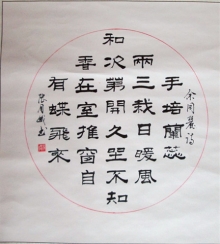 余同麓詩
手培蘭蕊
兩三栽日暖風
和次第開久坐不知
香在室推窗自
有蝶飛來